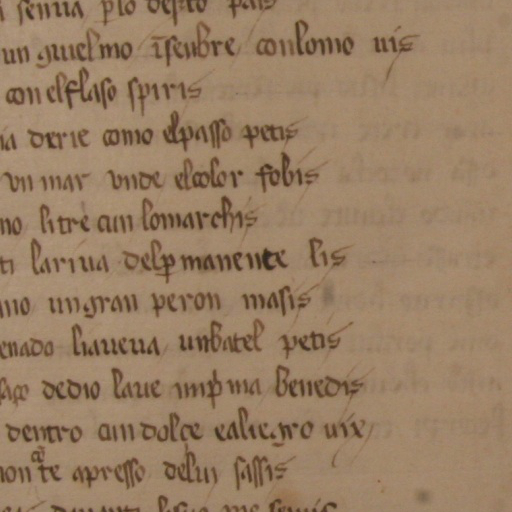 senua p lo desto pais
un guielmo īsenbre conlomo uis
con elflaso spiris
na derie como elpasso petis
vn mar vnde elcolor fobis
no litre cun lomarchis
ti lariua delpmanente lis
mo ungran peron masis
enado liaueua unbatel petis
faço dedio laue impma benedis
dentro cun dolçe ealiegro uix
non te apresso delui sassis